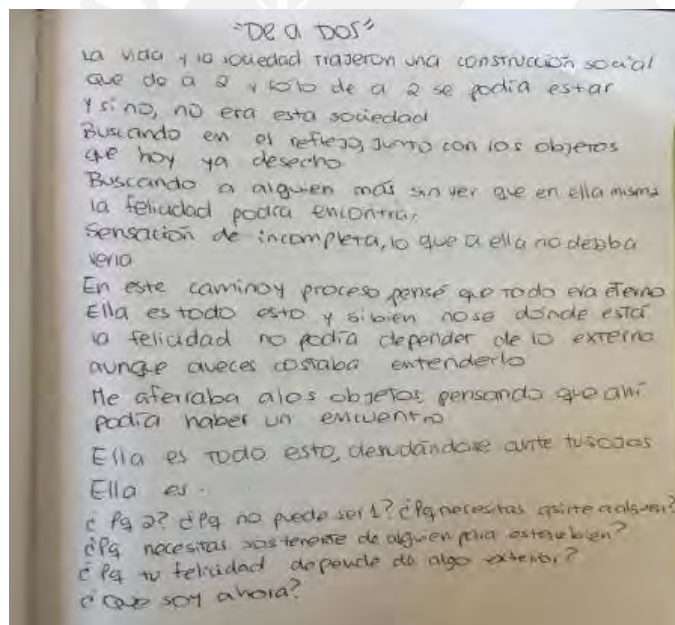 "De a Dos"
La vida y la sociedad trajeron una construcción social
que de a 2 y solo de a 2 se podía estar
y si no, no era esta sociedad
Buscando en el reflejo, junto con los objetos
que hoy ya desecho
Buscando a alguien más sin ver que en ella misma
la felicidad podía encontrar,
Sensación de incompleta, lo que a ella no dejaba
verla
En este camino y proceso pensé que todo era eterno
Ella es todo esto y si bien no se donde está
la felicidad no podía depender de lo externo
aunque aveces costaba entenderlo
Me aferraba a los objetos pensando que ahí
podía haber un encuentro
Ella es todo esto, desnudándose ante tus ojos
Ella es.
¿Pq 2? ¿Pq no puede ser 1? ¿Pq necesitas asirte a alguien?
¿Pq necesitas sostenerte de alguien para estar bien?
¿Pq tu felicidad depende de algo exterior?
¿Que soy ahora?